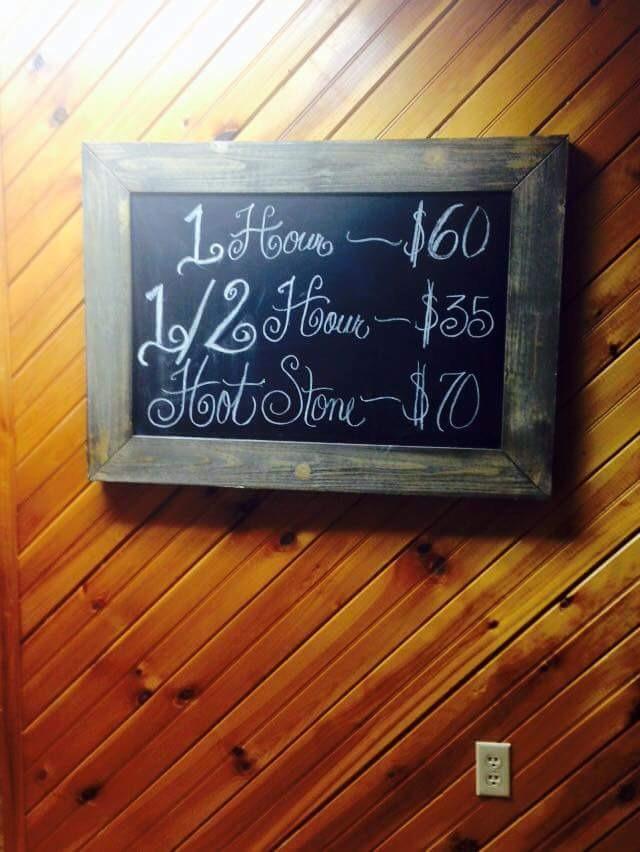 1 Hour — $60
1/2 Hour — $35
Hot Stone — $70